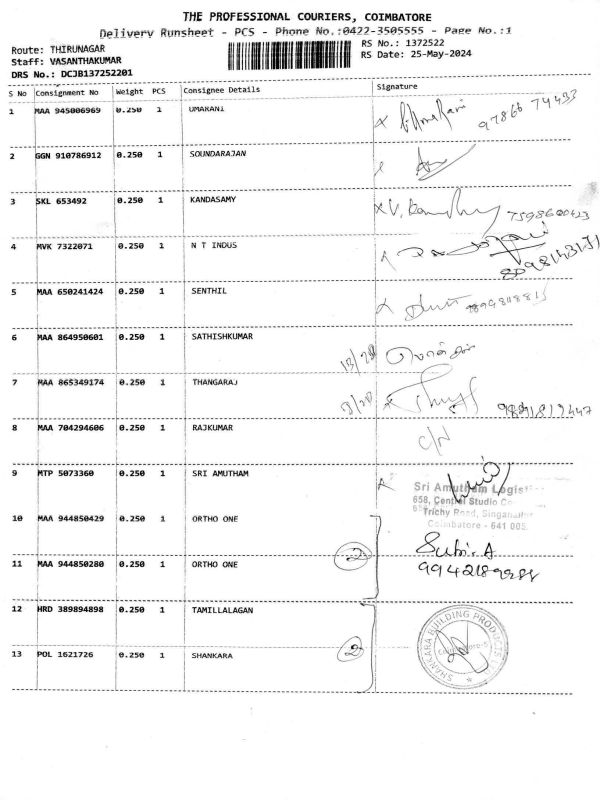 THE PROFESSIONAL COURIERS, COIMBATORE
Delivery Runsheet - PCS - Phone No.:0422-3505555 - Page No.:1
Route: THIRUNAGAR
RS No.: 1372522
Staff: VASANTHAKUMAR
RS Date: 25-May-2024
DRS No.: DCJB137252201
S No Consignment No Weight PCS Consignee Details Signature
1 MAA 945006969 0.250 1 UMARANI
2 GGN 910786912 0.250 1 SOUNDARAJAN
3 SKL 653492 0.250 1 KANDASAMY
4 MVK 7322071 0.250 1 N T INDUS
5 MAA 650241424 0.250 1 SENTHIL
6 MAA 864950601 0.250 1 SATHISHKUMAR
7 MAA 865349174 0.250 1 THANGARAJ
8 MAA 704294606 0.250 1 RAJKUMAR C/N
9 MTP 5073360 0.250 1 SRI AMUTHAM
Sri Amutham Logis
658, Central Studio Co
Trichy Road, Singanallur
Coimbatore - 641 005.
10 MAA 944850429 0.250 1 ORTHO ONE
11 MAA 944850280 0.250 1 ORTHO ONE 2
12 HRD 389894898 0.250 1 TAMILLALAGAN
13 POL 1621726 0.250 1 SHANKARA 2
SHANKARA BUILDING PRODUCTS LTD